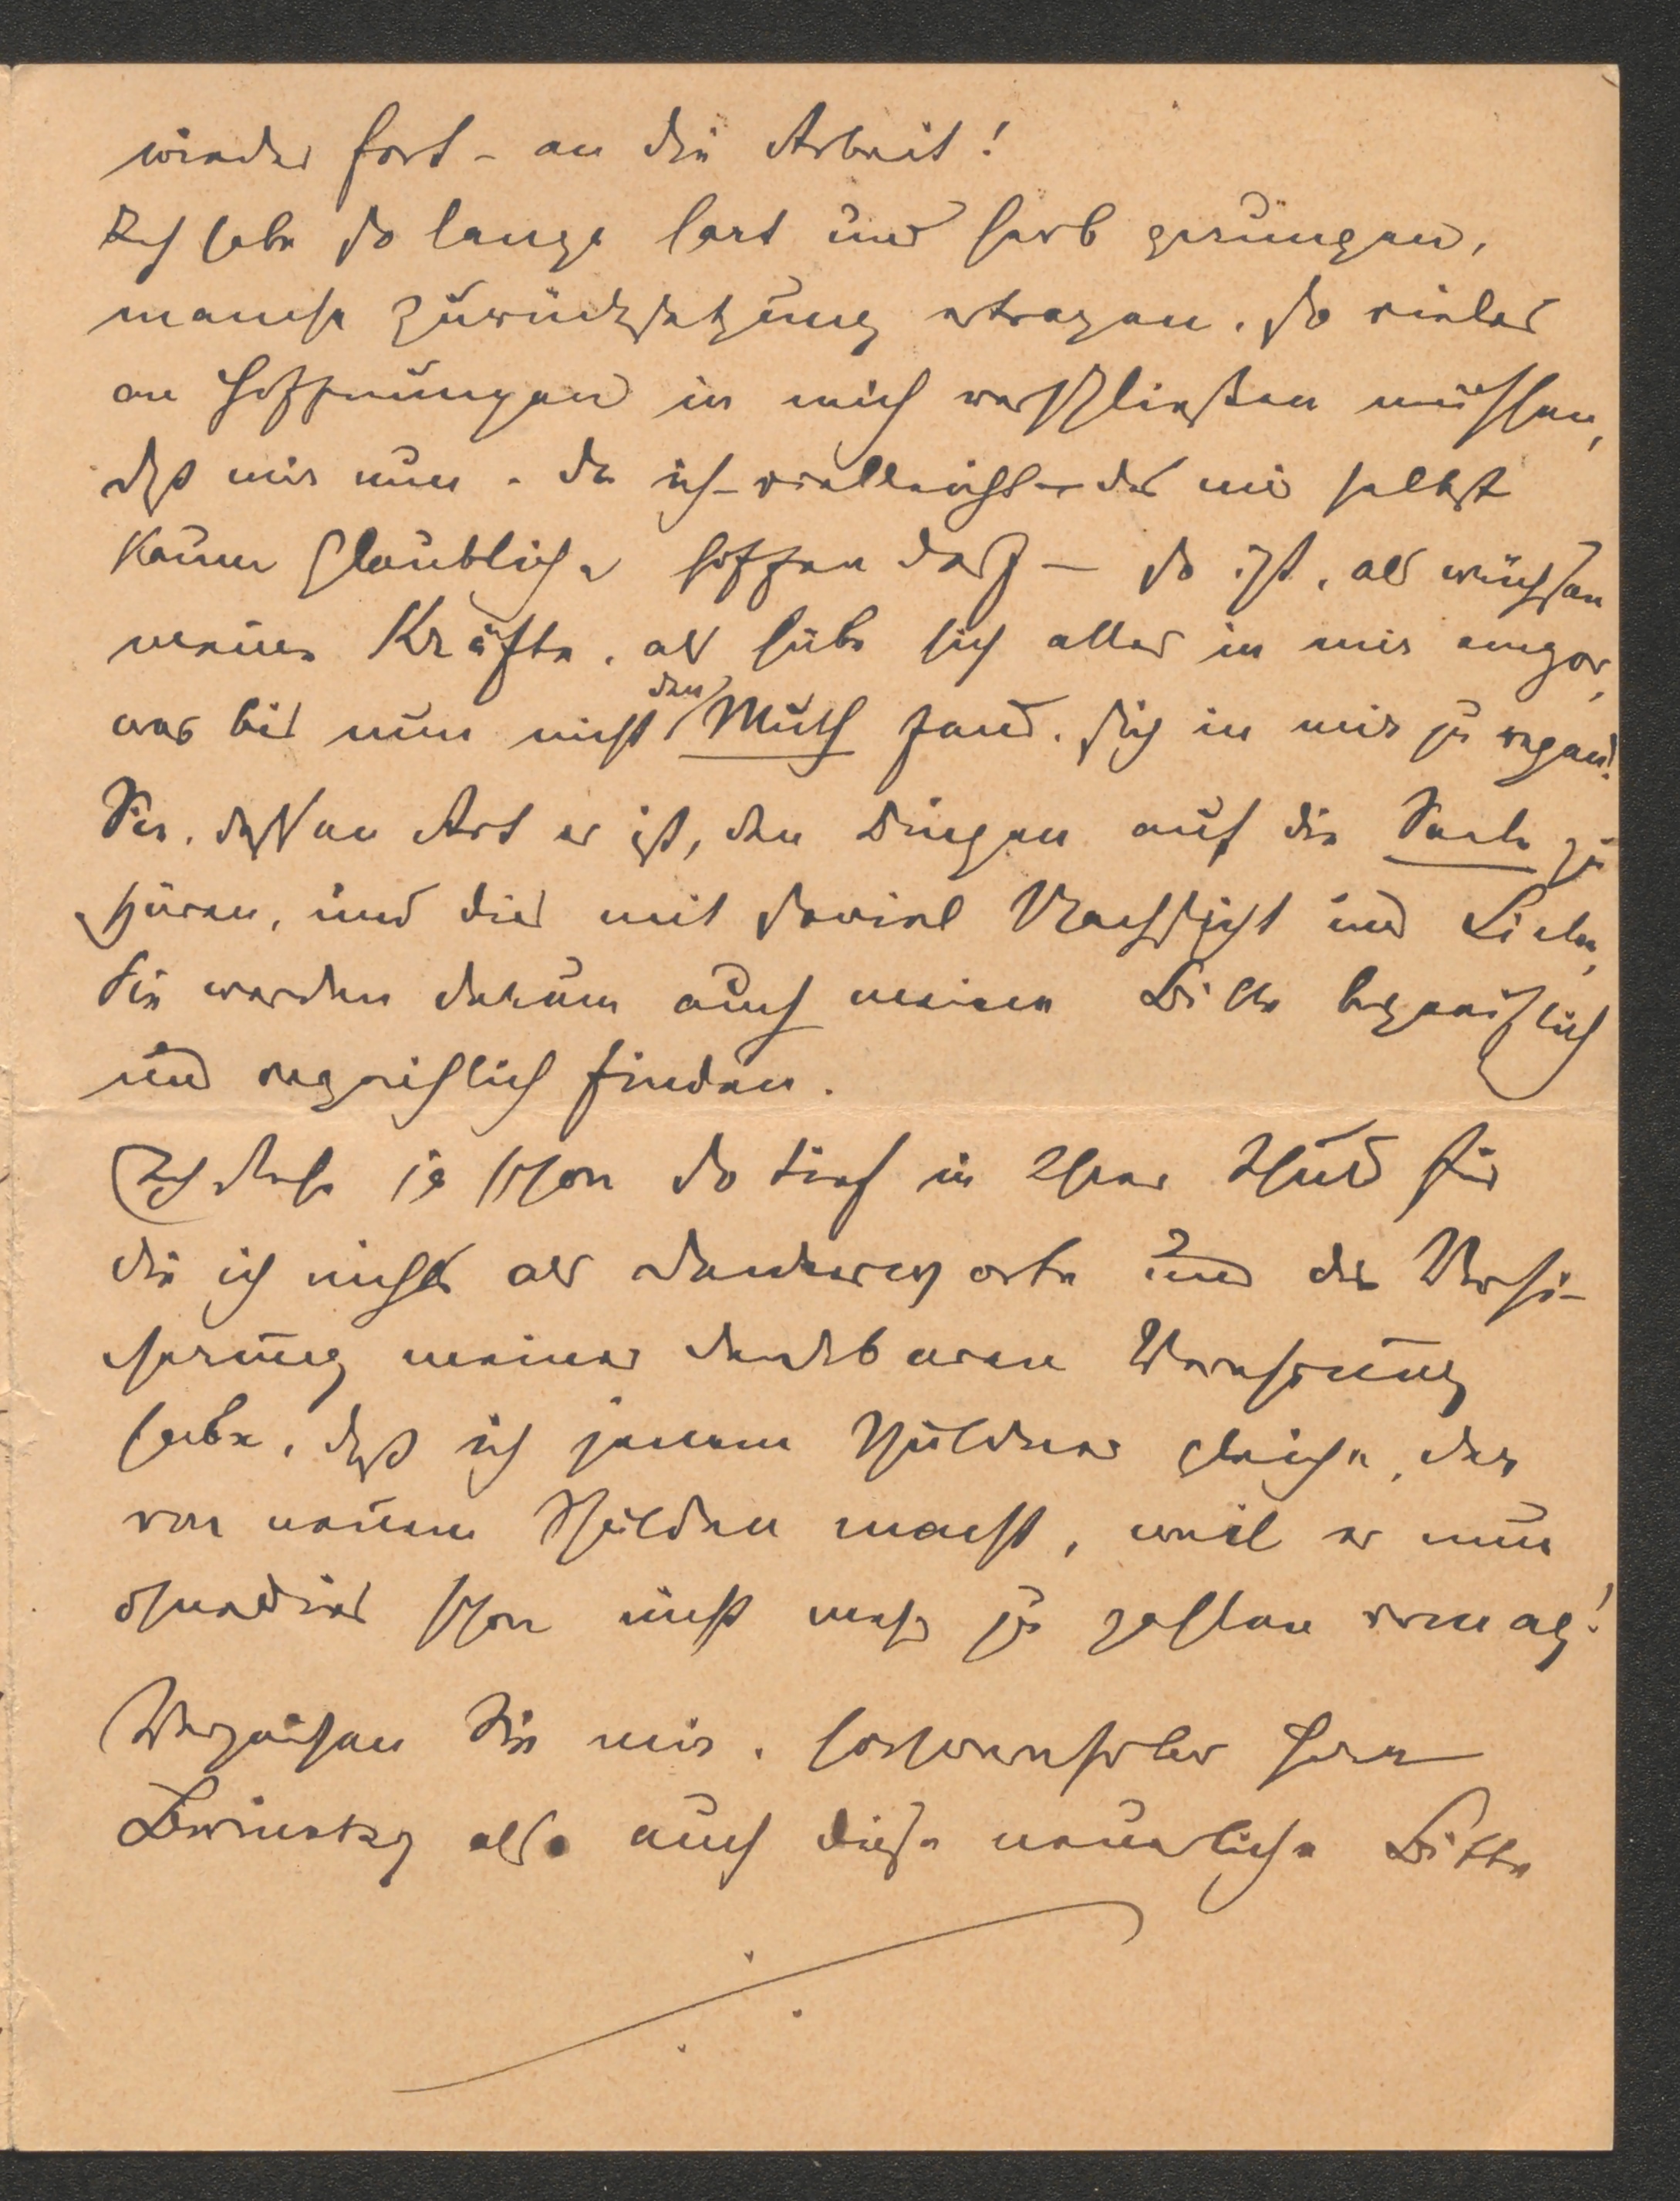 wieder fort – an die Arbeit!
Ich habe so lange hart und herb gerungen,
manche Zurücksetzung ertragen, so vieles
an Hoffnungen in mich verschließen müssen,
daß mir nun, da ich – vielleicht – das mir selbst
kaum Glaubliche hoffen darf – so ist, als wüchsen
meine Kräfte, als hübe sich alles in mir empor,
was bis nun nicht den Muth fand, sich in mir zu regen!
Sie, dessen Art es ist, den Dingen auf die Seele zu
spüren, und dies mit soviel Nachsicht und Liebe,
Sie werden darum auch meine Bitte begreiflich
und verzeihlich finden.
Ich stehe ja schon so tief in Ihrer Schuld für
die ich nichts als Dankesworte und die Versi-
cherung meiner dankbaren Verehrung
habe, daß ich jenem Schuldner gleiche, der
von neuem Schulden macht, weil er nun
ohnedies schon nicht mehr zu zahlen vermag!
Verzeihen Sie mir, hochverehrter Herr
Lewinsky also auch diese neuerliche Bitte